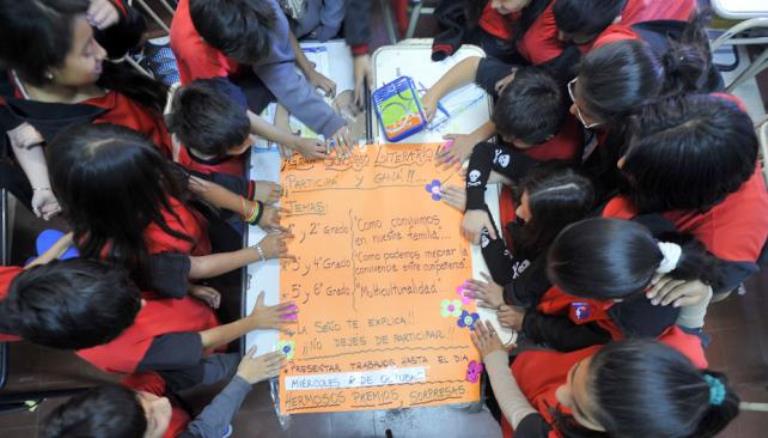 LITERARIO
¡PARTICIPÁ Y GANÁ!!...
TEMAS:
y 2° Grado "Como convivimos
en nuestra familia"...
3° y 4° Grado "Como podemos mejorar la
convivencia entre compañeros"
5° y 6° Grado "Multiculturalidad
LA SEÑO TE EXPLICA!!
¡¡NO DEJES DE PARTICIPAR!!
PRESENTAR TRABAJOS HASTA EL DÍA
MIÉRCOLES DE OCTUBRE
HERMOSOS PREMIOS, SORPRESAS